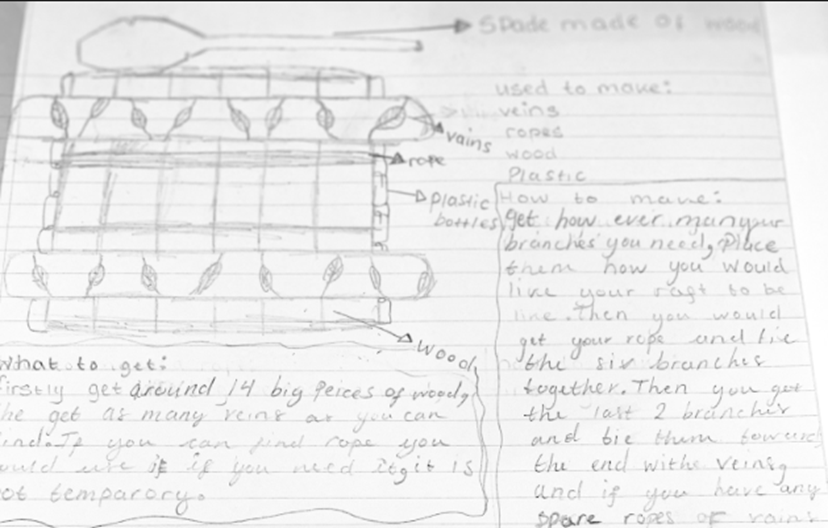 Spade made of wood
used to make:
veins
ropes
wood
Plastic
vains
rope
Plastic
bottles
Wood
How to make:
get how ever manyour
branches you need, Place
them how you would
live your raft to be
line. Then you would
get your rope and tie
the six branches
together. Then you get
the last 2 branches
and tie them toward
the end withe veins,
and if you have any
spare ropes of vains
What to get:
firstly get around 14 big Peices of wood,
he get as many veins as you can
ind. If you can find rope you
ould use it if you need it git is
ot temparory.